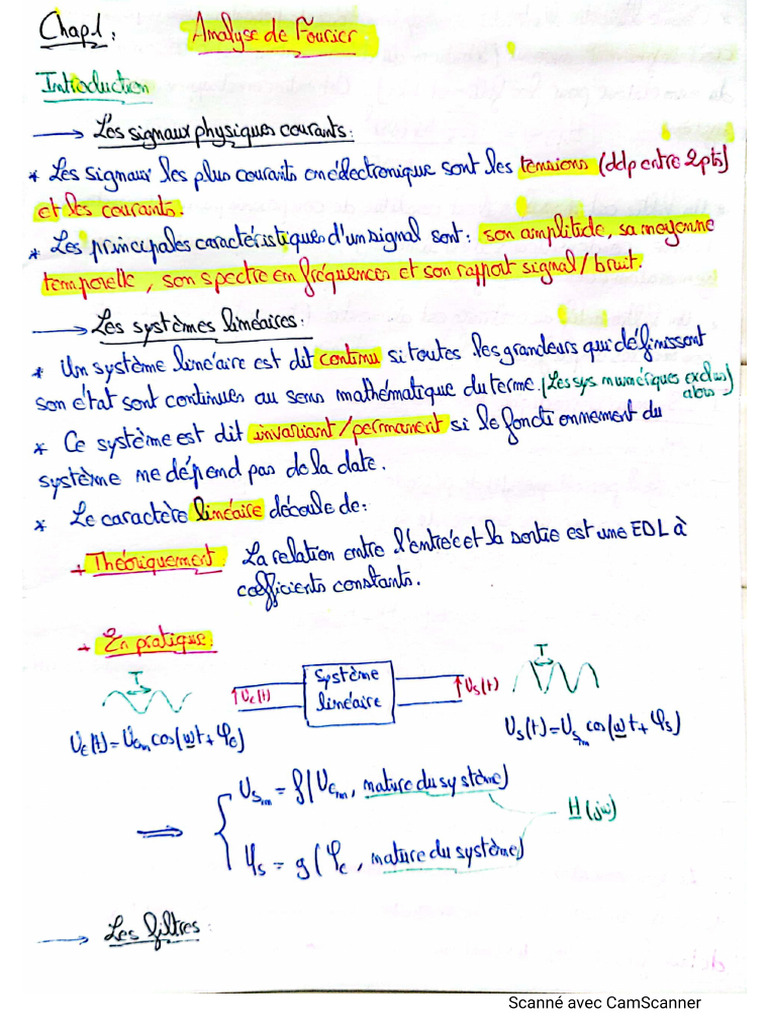 Chap1: Analyse de Fourier
Introduction
→ Les signaux physiques courants:
* Les signaux les plus courants en électronique sont les tensions (ddp entre 2pts)
et les courants.
* Les principales caractéristiques d'un signal sont: son amplitude, sa moyenne
temporelle, son spectre en fréquences et son rapport signal/bruit.
→ Les systèmes linéaires:
* Un système linéaire est dit continu si toutes les grandeurs qui définissent
son état sont continues au sens mathématique du terme (Les sys numériques exclus)
* Ce système est dit invariant/permanent si le fonctionnement du
système ne dépend pas de la date.
* Le caractère linéaire découle de:
+ Théoriquement: La relation entre l'entrée et la sortie est une EDL à
coefficients constants.
+ En pratique:
T
Ue(t)
Système
linéaire
Us(t)
T
Ue(t)=Uem cos(ωt+φe)
Us(t)=Usm cos(ωt+φs)
⇒ { Usm = f(Uem, nature du système)
φs = g(φe, nature du système)
H(jω)
→ Les filtres:
Scanné avec CamScanner